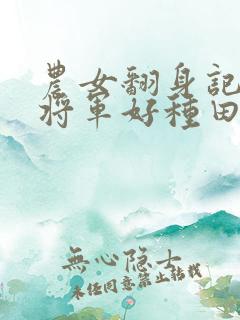 農女翻身記
將軍好種田
無心隐士
未经同意禁止转载